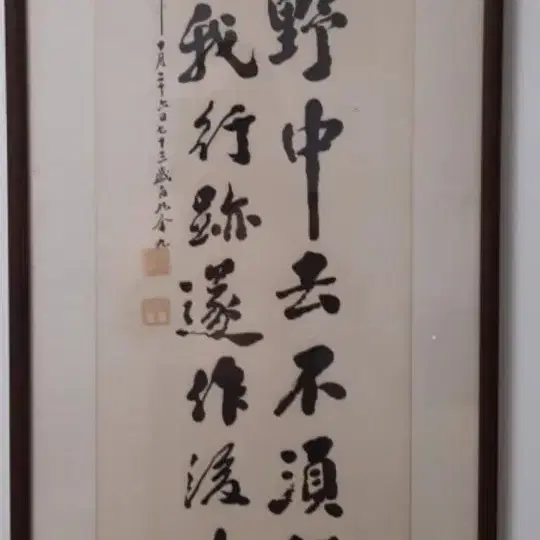 野中去不須
我行跡遂作後
十月二十六日七十三歲白凡金九